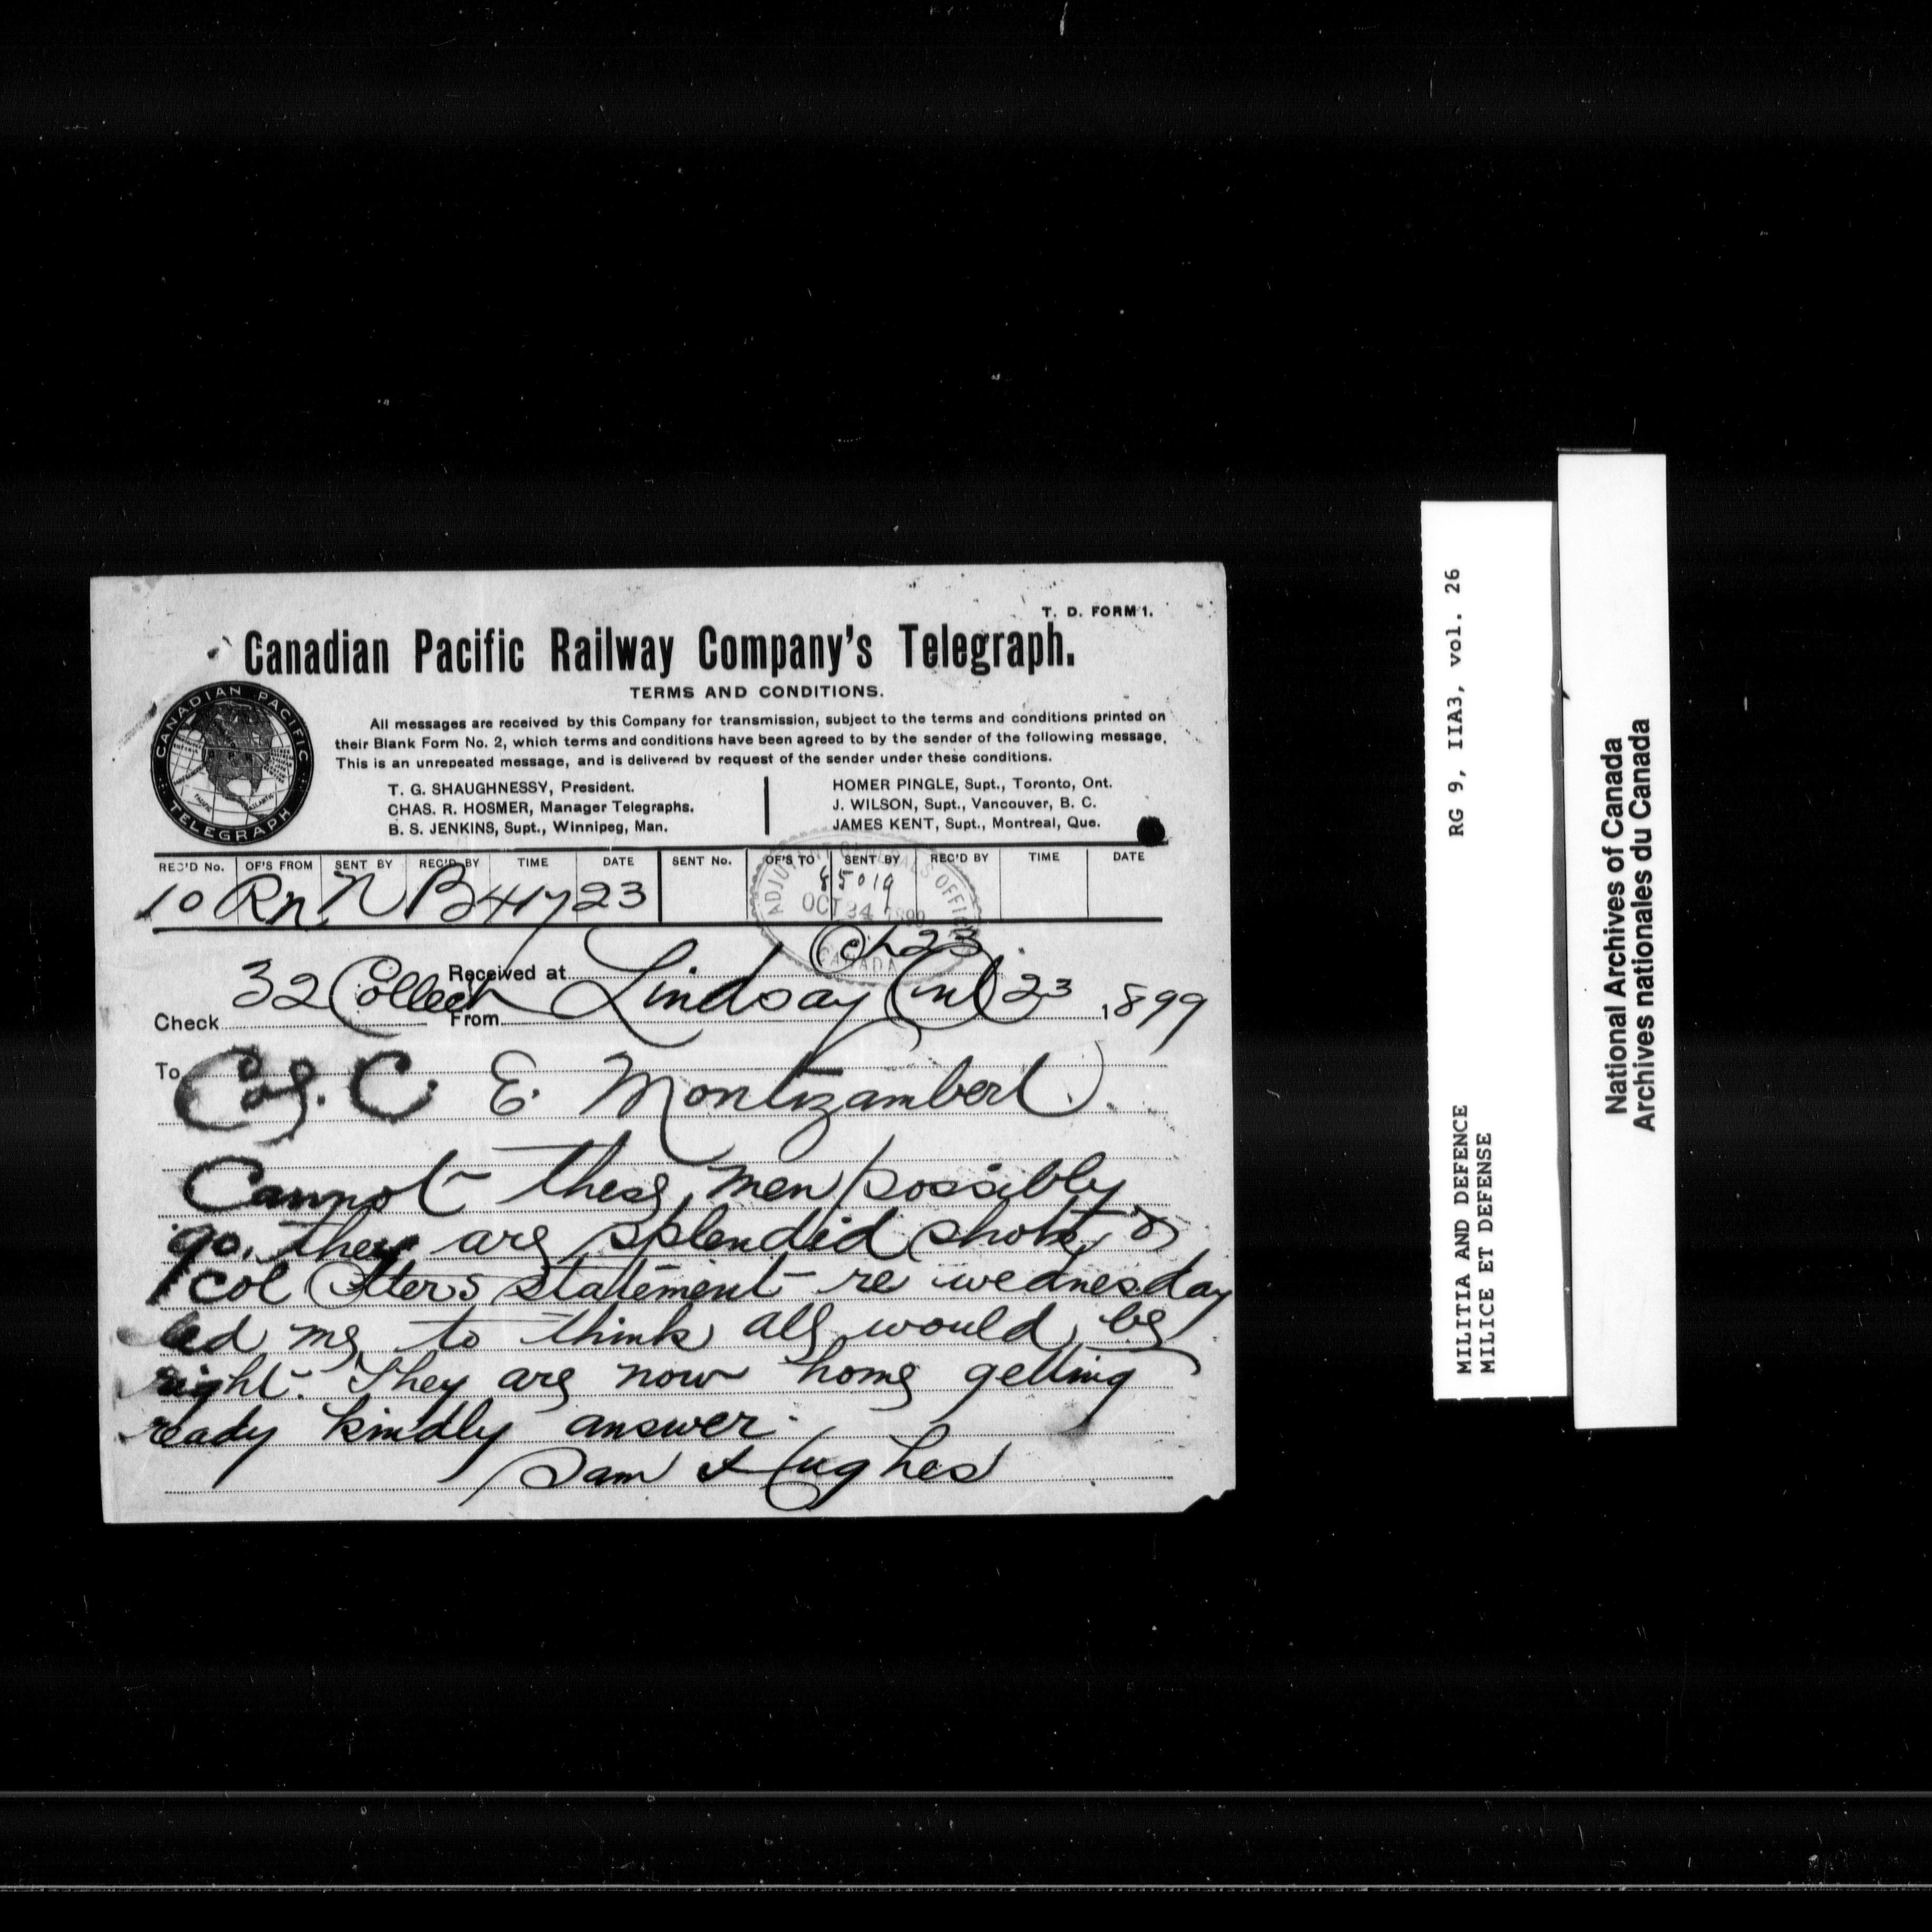 T. D. FORM 1.
Canadian Pacific Railway Company's Telegraph.
TERMS AND CONDITIONS.
CANADIAN PACIFIC
TELEGRAPH
All messages are received by this Company for transmission, subject to the terms and conditions printed on
their Blank Form No. 2, which terms and conditions have been agreed to by the sender of the following message.
This is an unrepeated message, and is delivered by request of the sender under these conditions.
T. G. SHAUGHNESSY, President.
CHAS. R. HOSMER, Manager Telegraphs.
B. S. JENKINS, Supt., Winnipeg, Man.
HOMER PINGLE, Supt., Toronto, Ont.
J. WILSON, Supt., Vancouver, B. C.
JAMES KENT, Supt., Montreal, Que.
REC'D No. OF'S FROM SENT BY REC'D BY TIME DATE SENT No. OF'S TO SENT BY REC'D BY TIME DATE
10 Rn N B 417 23
ADJUTANT GENERAL'S OFFICE
85019
OCT 24 1899
CANADA
Oct 23
Received at
Check 32 Collect From Lindsay Ont 23 1899
To Col. C E. Montizambert
Cannot these men possibly
go. they are splendid shots &
Col Otters statement re wednesday
led me to think all would be
right. They are now home getting
ready kindly answer.
Sam Hughes
MILITIA AND DEFENCE RG 9, IIA3, vol. 26
MILICE ET DEFENSE
National Archives of Canada
Archives nationales du Canada